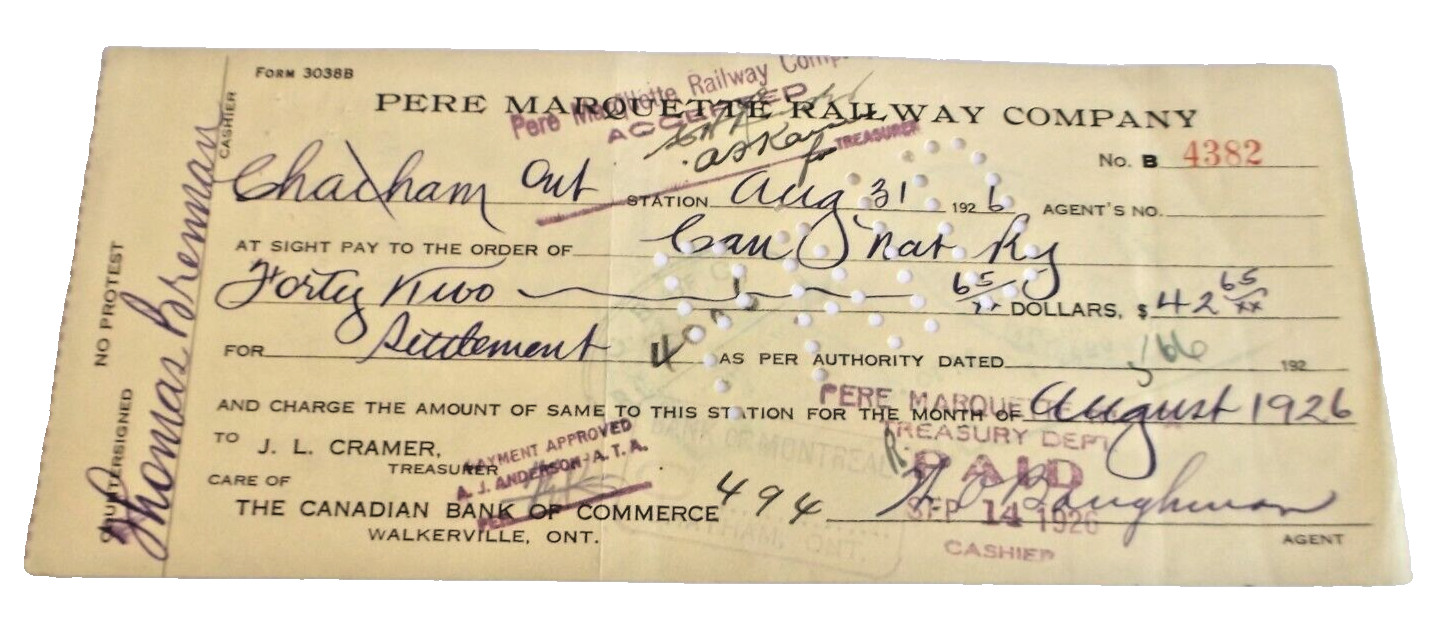 FORM 3038B
PERE MARQUETTE RAILWAY COMPANY
Pere Marquette Railway Comp
ACCEPTED
TREASURER
No. B 4382
Chatham Ont STATION Aug 31 1926 AGENT'S NO.
AT SIGHT PAY TO THE ORDER OF Can Nat Ry
Forty Two 65/xx DOLLARS, $ 42 65/xx
FOR Settlement AS PER AUTHORITY DATED 192
AND CHARGE THE AMOUNT OF SAME TO THIS STATION FOR THE MONTH OF August 1926
TO J. L. CRAMER,
TREASURER
CARE OF
THE CANADIAN BANK OF COMMERCE
WALKERVILLE, ONT.
494
AGENT
PAYMENT APPROVED
A. J. ANDERSON-A. T. A.
PER
PERE MARQUETTE
TREASURY DEPT.
PAID
SEP 14 1926
CASHIER
BANK OF MONTREAL
NO PROTEST
COUNTERSIGNED Thomas Brennan CASHIER